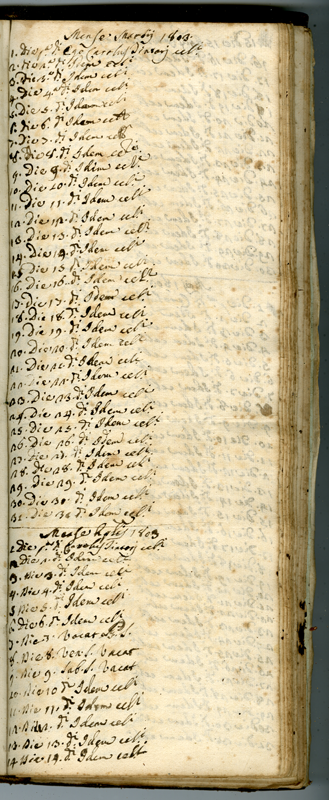 Mense Martij 1803.
1. Die 1.ª D. Carolus celt
2. Die 2. Dº Idem celt
3. Die 3.º Dº Idem celt
4. Die 4.º Dº Idem celt
5. Die 5. Dº Idem celt
6. Die 6. Dº Idem celt
7. Die 7. Dº Idem celt
8. Die 8. Dº Idem celt
9. Die 9. Dº Idem celt
10. Die 10. Dº Idem celt
11. Die 11. Dº Idem celt
12. Die 12. Dº Idem celt
13. Die 13. Dº Idem celt
14. Die 14. Dº Idem celt
15. Die 15. Dº Idem celt
16. Die 16. Dº Idem celt
17. Die 17. Dº Idem celt
18. Die 18. Dº Idem celt
19. Die 19. Dº Idem celt
20. Die 20. Dº Idem celt
21. Die 21. Dº Idem celt
22. Die 22. Dº Idem celt
23. Die 23. Dº Idem celt
24. Die 24. Dº Idem celt
25. Die 25. Dº Idem celt
26. Die 26. Dº Idem celt
27. Die 27. Dº Idem celt
28. Die 28. Dº Idem celt
29. Die 29. Dº Idem celt
30. Die 30. Dº Idem celt
31. Die 31. Dº Idem celt
Mense Aplis 1803
1. Die 1.ª Dº Carolus celt
2. Die 2. Dº Idem celt
3. Die 3. Dº Idem celt
4. Die 4. Dº Idem celt
5. Die 5. Dº Idem celt
6. Die 6. Dº Idem celt
7. Die 7. Vacat
8. Die 8. Ven. S. Vacat
9. Die 9. Sab. S. Vacat
10. Die 10 Dº Idem celt
11. Die 11. Dº Idem celt
12. Die 12. Dº Idem celt
13. Die 13. Dº Idem celt
14. Die 14. Dº Idem celt